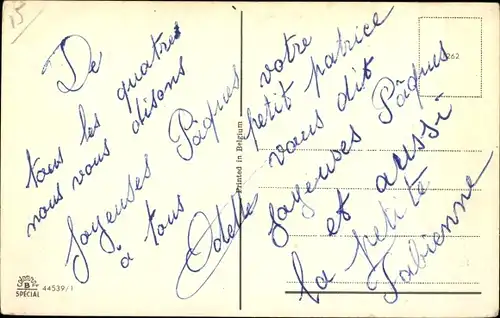 15
De
tous les quatres
nous vous disons
Joyeuses Pâques
à tous
Odette
votre
petit patrice
vous dit
Joyeuses Pâques
et aussi
la petite
Fabienne
Printed in Belgium
262
B
SPECIAL 44539/1